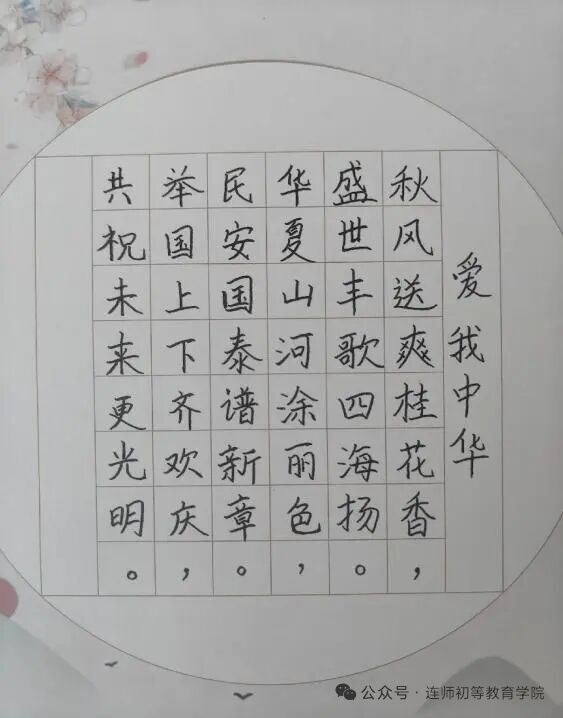 爱我中华
秋风送爽桂花香，
盛世丰歌四海扬。
华夏山河涂丽色，
民安国泰谱新章。
举国上下齐欢庆，
共祝未来更光明。
公众号·连师初等教育学院